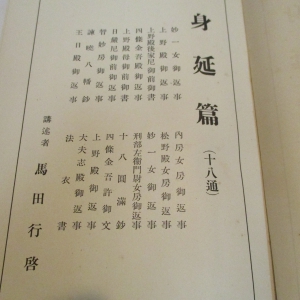 身延篇（十八通）
妙一女御返事
上野殿御返事
上野殿後家尼御前御書
四條金吾殿御返事
上野殿母御前御書
日嚴尼御前御返事
智妙房御返事
諫曉八幡鈔
王日殿御返事
内房女房御返事
松野殿女房御返事
妙一女御返事
刑部左衞門尉女房御返事
十八圓滿鈔
四條金吾許御文
上野殿御返事
大夫志殿御返事
法衣書
講述者 馬田行啓